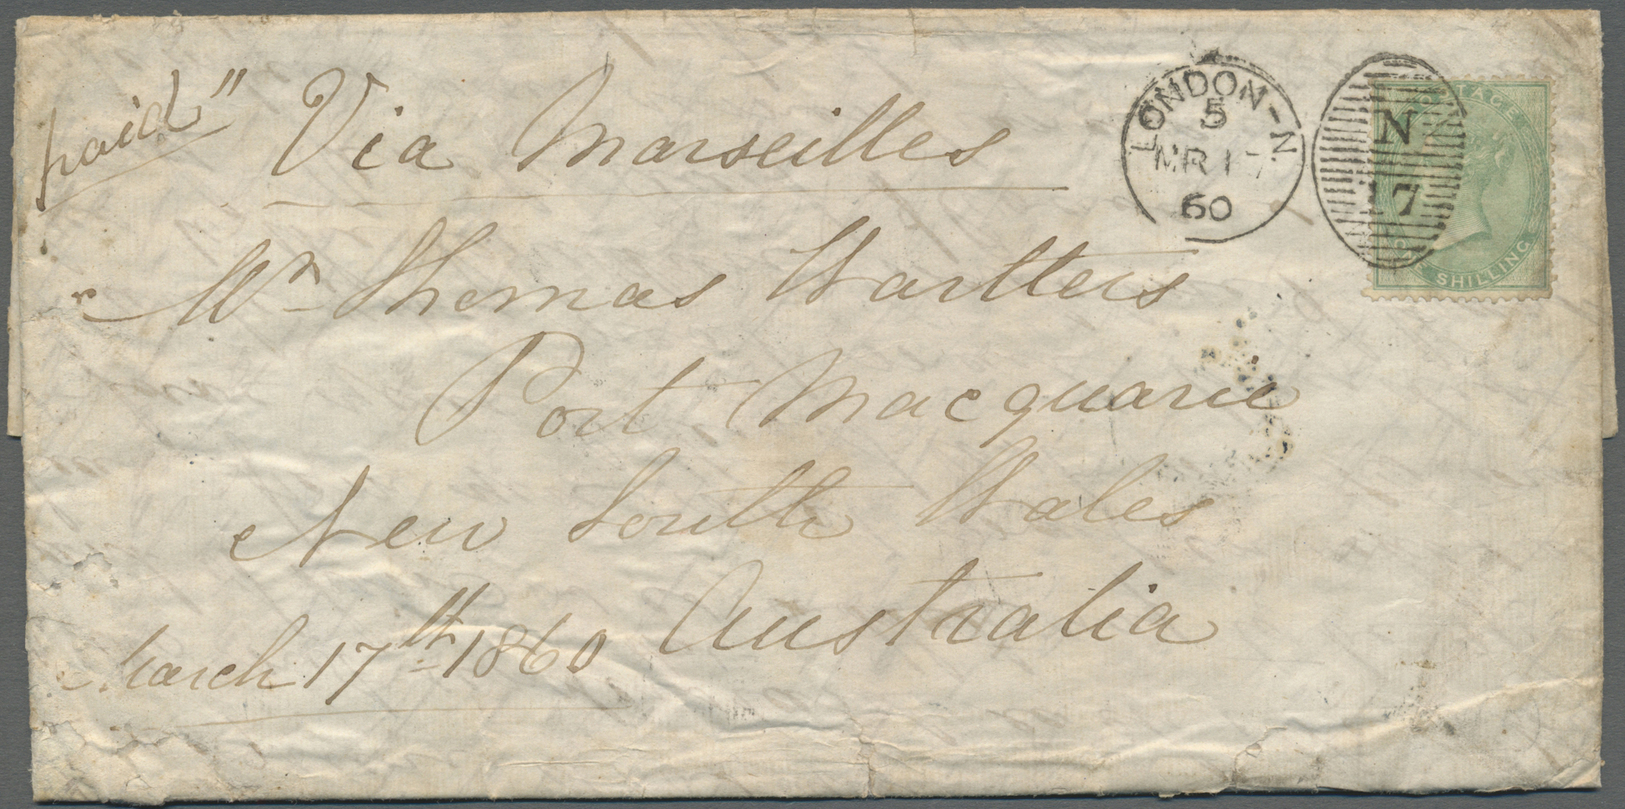 paid" Via Marseilles
LONDON-N.
5
MR 17
60
N
17
POSTAGE
ONE SHILLING
Mr Thomas Wartters
Port Macquarie
New South Wales
Australia
March 17th 1860